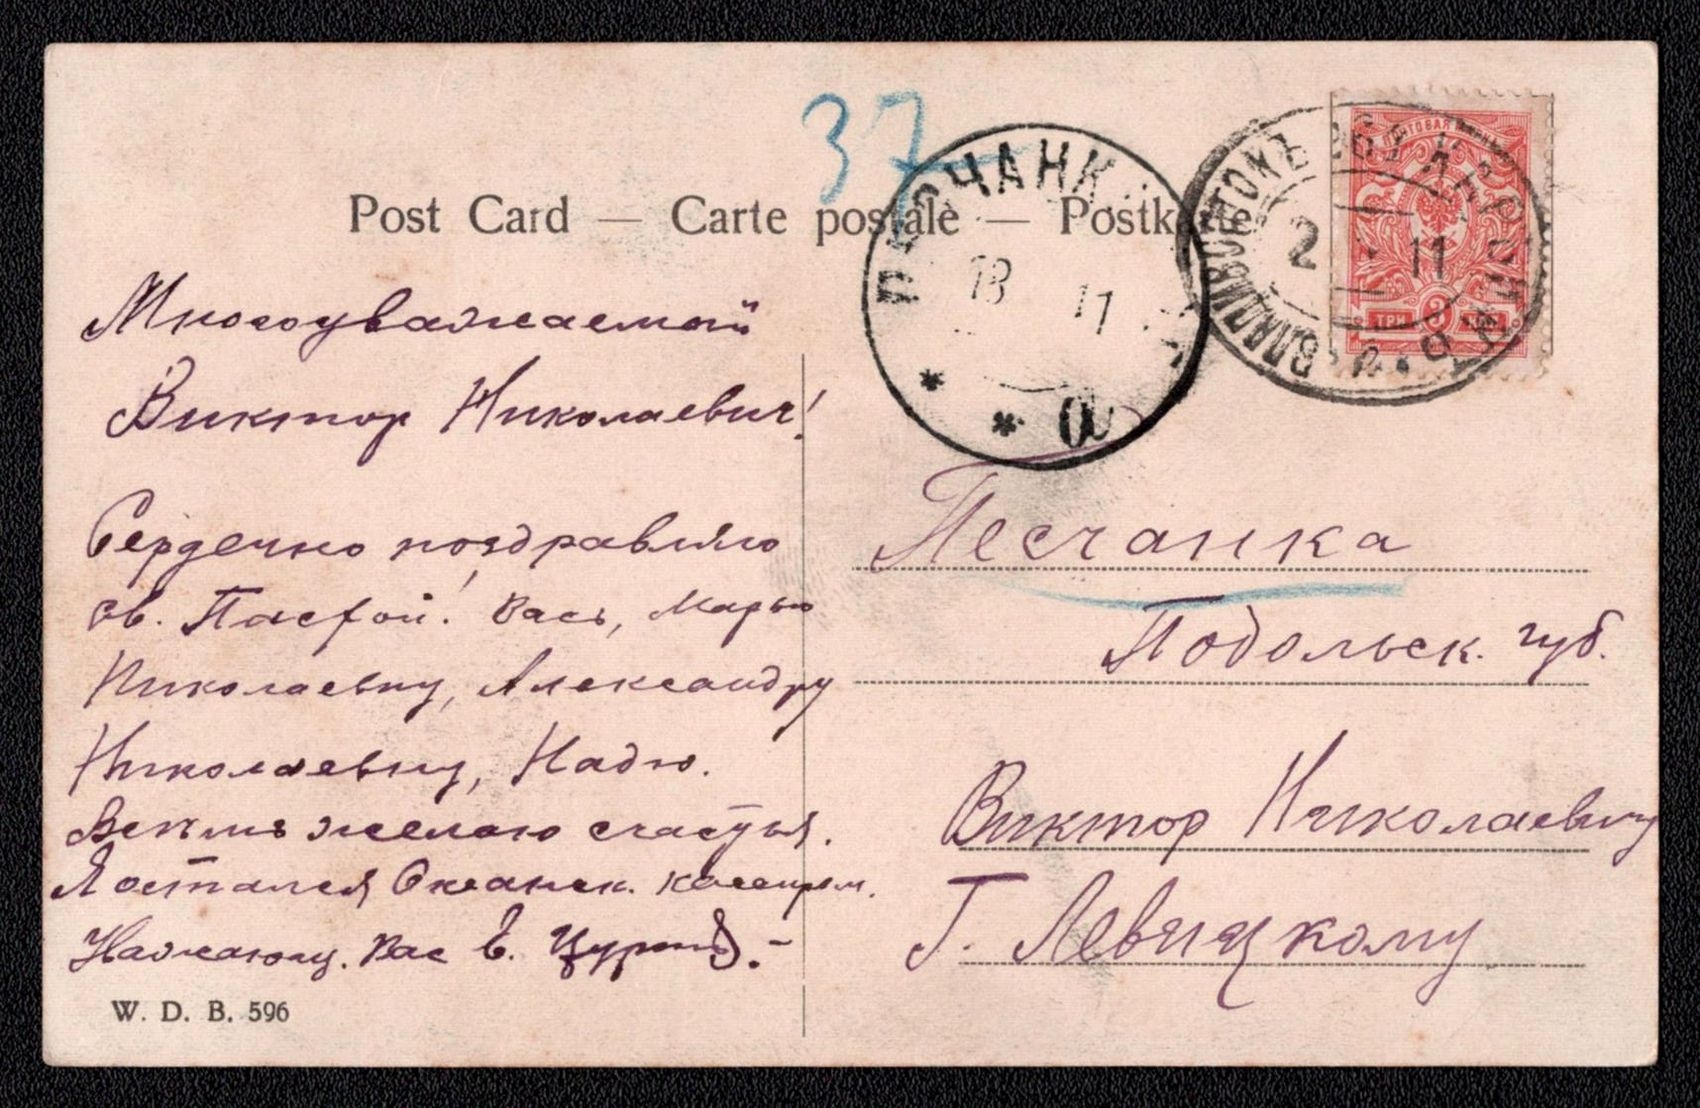 37
Post Card — Carte postale — Postkarte
ПЕСЧАНК
18 11
ВЛАДИВОСТОКЪ
2 11
ПОЧТОВАЯ МАРКА
ТРИ 3 КОП
Многоуважаемый
Виктор Николаевич!
Сердечно поздравляю
св. Пасхой! Васъ, Марью
Николаевну, Александру
Николаевну, Надю.
Всемъ желаю счастья.
Я остался Океанск. кассиром.
Уважающ. Вас В.
W. D. B. 596
Песчанка
Подольск. губ.
Виктор Николаевичу
Г. Левицкому